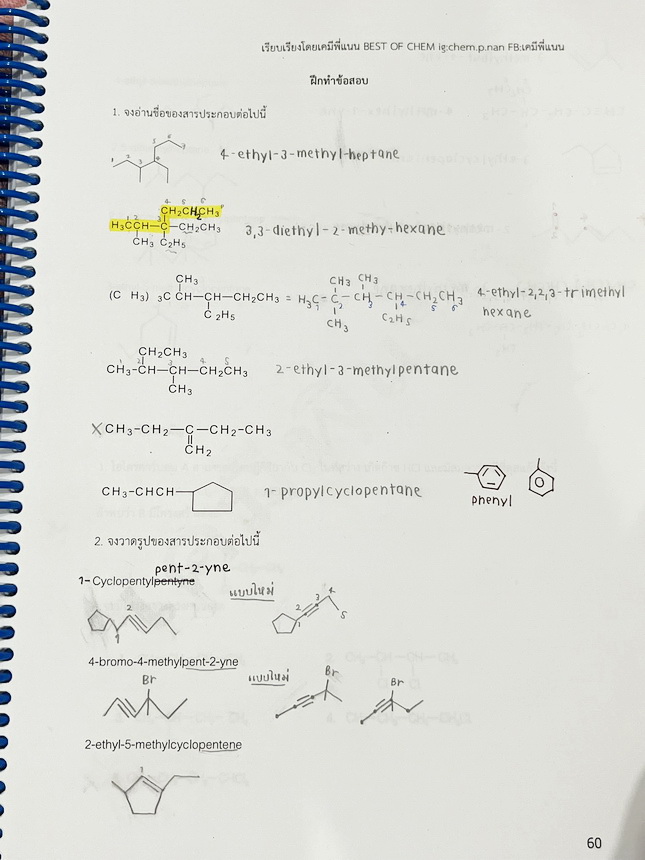 เรียบเรียงโดยเคมีพี่แนน BEST OF CHEM ig:chem.p.nan FB:เคมีพี่แนน
ฝึกทำข้อสอบ
1. จงอ่านชื่อของสารประกอบต่อไปนี้
1 2 3 4 5 6 7
4-ethyl-3-methyl-heptane
4 5 6
CH₂CH₂CH₃
1 2 3
H₃CCH—C—CH₂CH₃
CH₃ C₂H₅
3,3-diethyl-2-methy-hexane
CH₃
(C H₃) ₃C CH—CH—CH₂CH₃ = H₃C—C—CH—CH—CH₂CH₃
C₂H₅
CH₃ CH₃
1 2 3 4 5 6
CH₃ C₂H₅
4-ethyl-2,2,3-trimethyl
hexane
CH₂CH₃
1 2 3 4 5
CH₃-CH—CH—CH₂CH₃
CH₃
2-ethyl-3-methylpentane
X CH₃-CH₂—C—CH₂-CH₃
CH₂
CH₃-CHCH—
1-propylcyclopentane
phenyl
2. จงวาดรูปของสารประกอบต่อไปนี้
pent-2-yne
1-Cyclopentylpentyne
แบบใหม่
1 2
1 2 3 4 5
4-bromo-4-methylpent-2-yne
แบบใหม่
Br
Br
Br
2-ethyl-5-methylcyclopentene
1
60